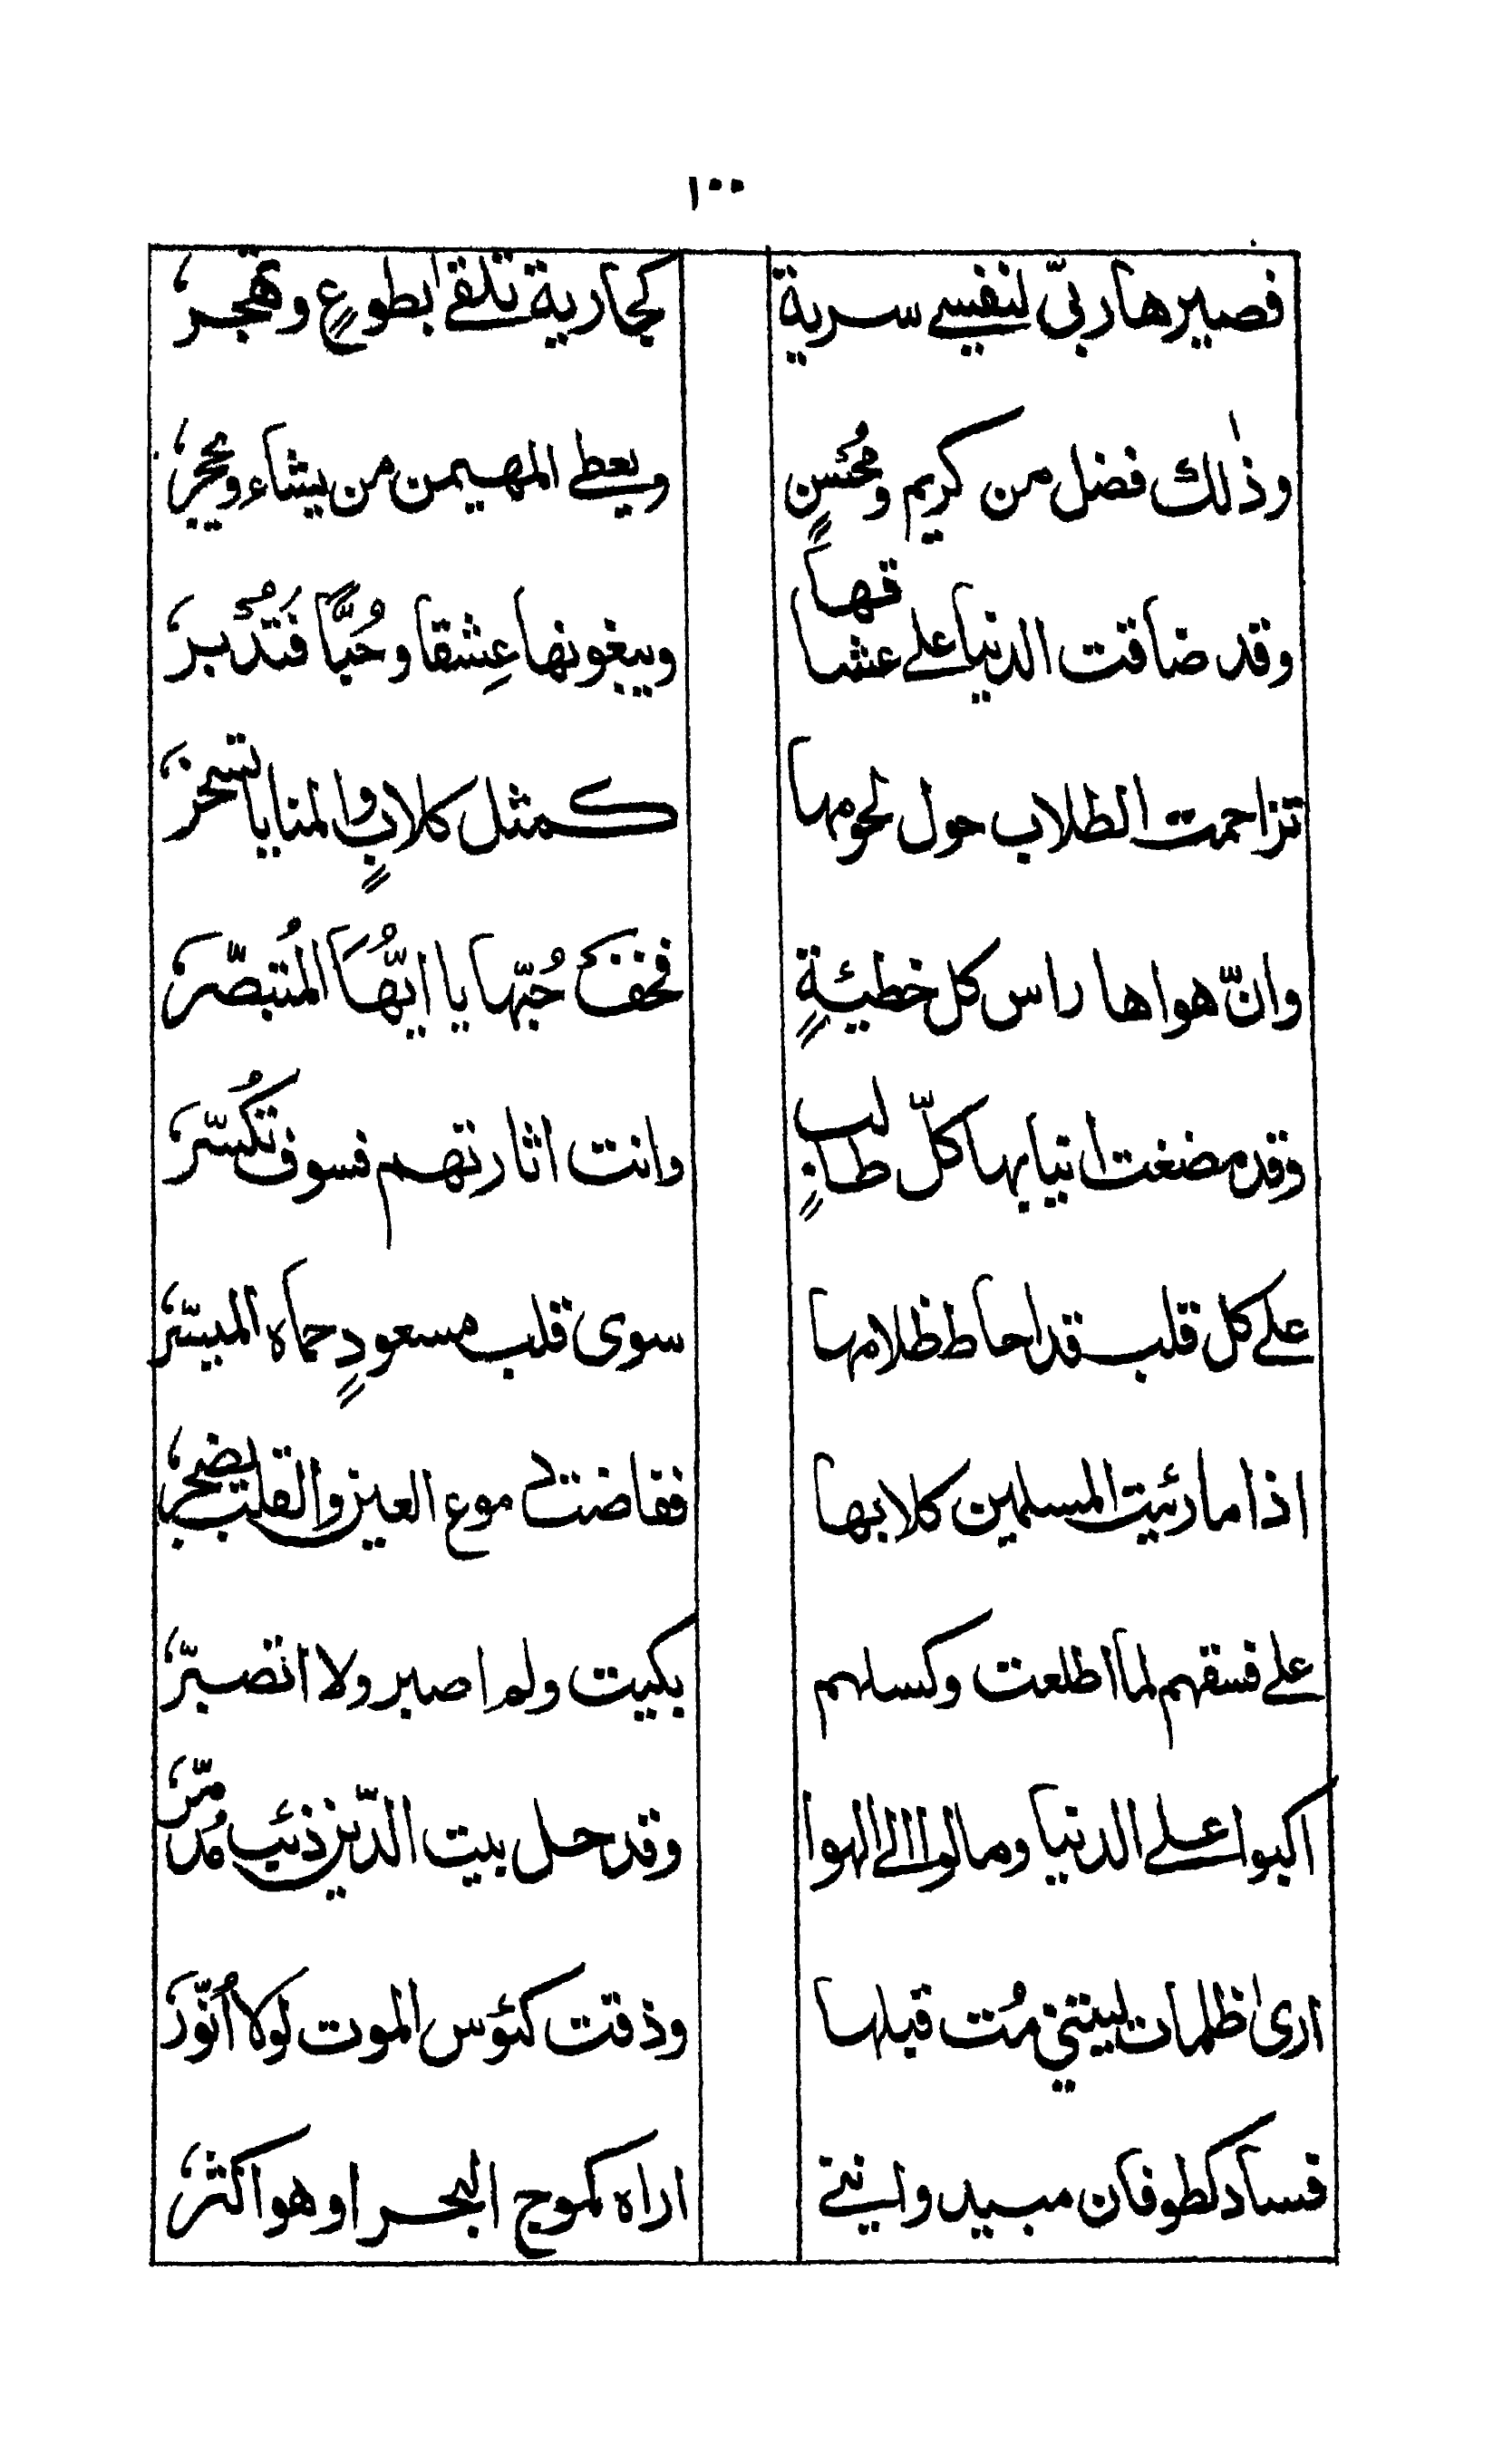 ١٠٠
فصيرها ربّى لنفسے سرية كجارية تلقےٰ بطوعٍ وتهجر،
وذٰلك فضل من كريم ومُحْسنٍ ويعطے المهيمن من يشاء ويحجز،
وقد ضاقت الدنيا علے عشاقها ويبغونها عِشقا وحُبًّا فَتُدْبر،
تزاحمت الطلاب حول لحومها كمثل كلابٍ والمنايا تسخر،
وانّ هواها راس كل خطيئةٍ فخف حُبّها يا ايّهَا المُتبصّر،
وقد مضغت انيابها كلّ طالبٍ وانت اثارتهم فسوف تُكسّر،
علے كل قلب قد احاط ظلامها سوى قلب مسعودٍ حماه الميسّر،
اذا ما رئيت المسلمين كلابها ففاضت دموع العين والقلب يضجر،
علے فسقهم لما اطلعت وكسلهم بكيت ولم اصبر ولا اتصبّر،
اكبوا علے الدنيا ومالوا الے الهوا وقد حل بيت الدّين ذئب مُدمّر،
ارىٰ ظلمات ليتنے مُت قبلها وذقت كئوس الموت لولا اُنوّر،
فساد كطوفان مبيد واننے اراه كموج البحر او هو اكثر،